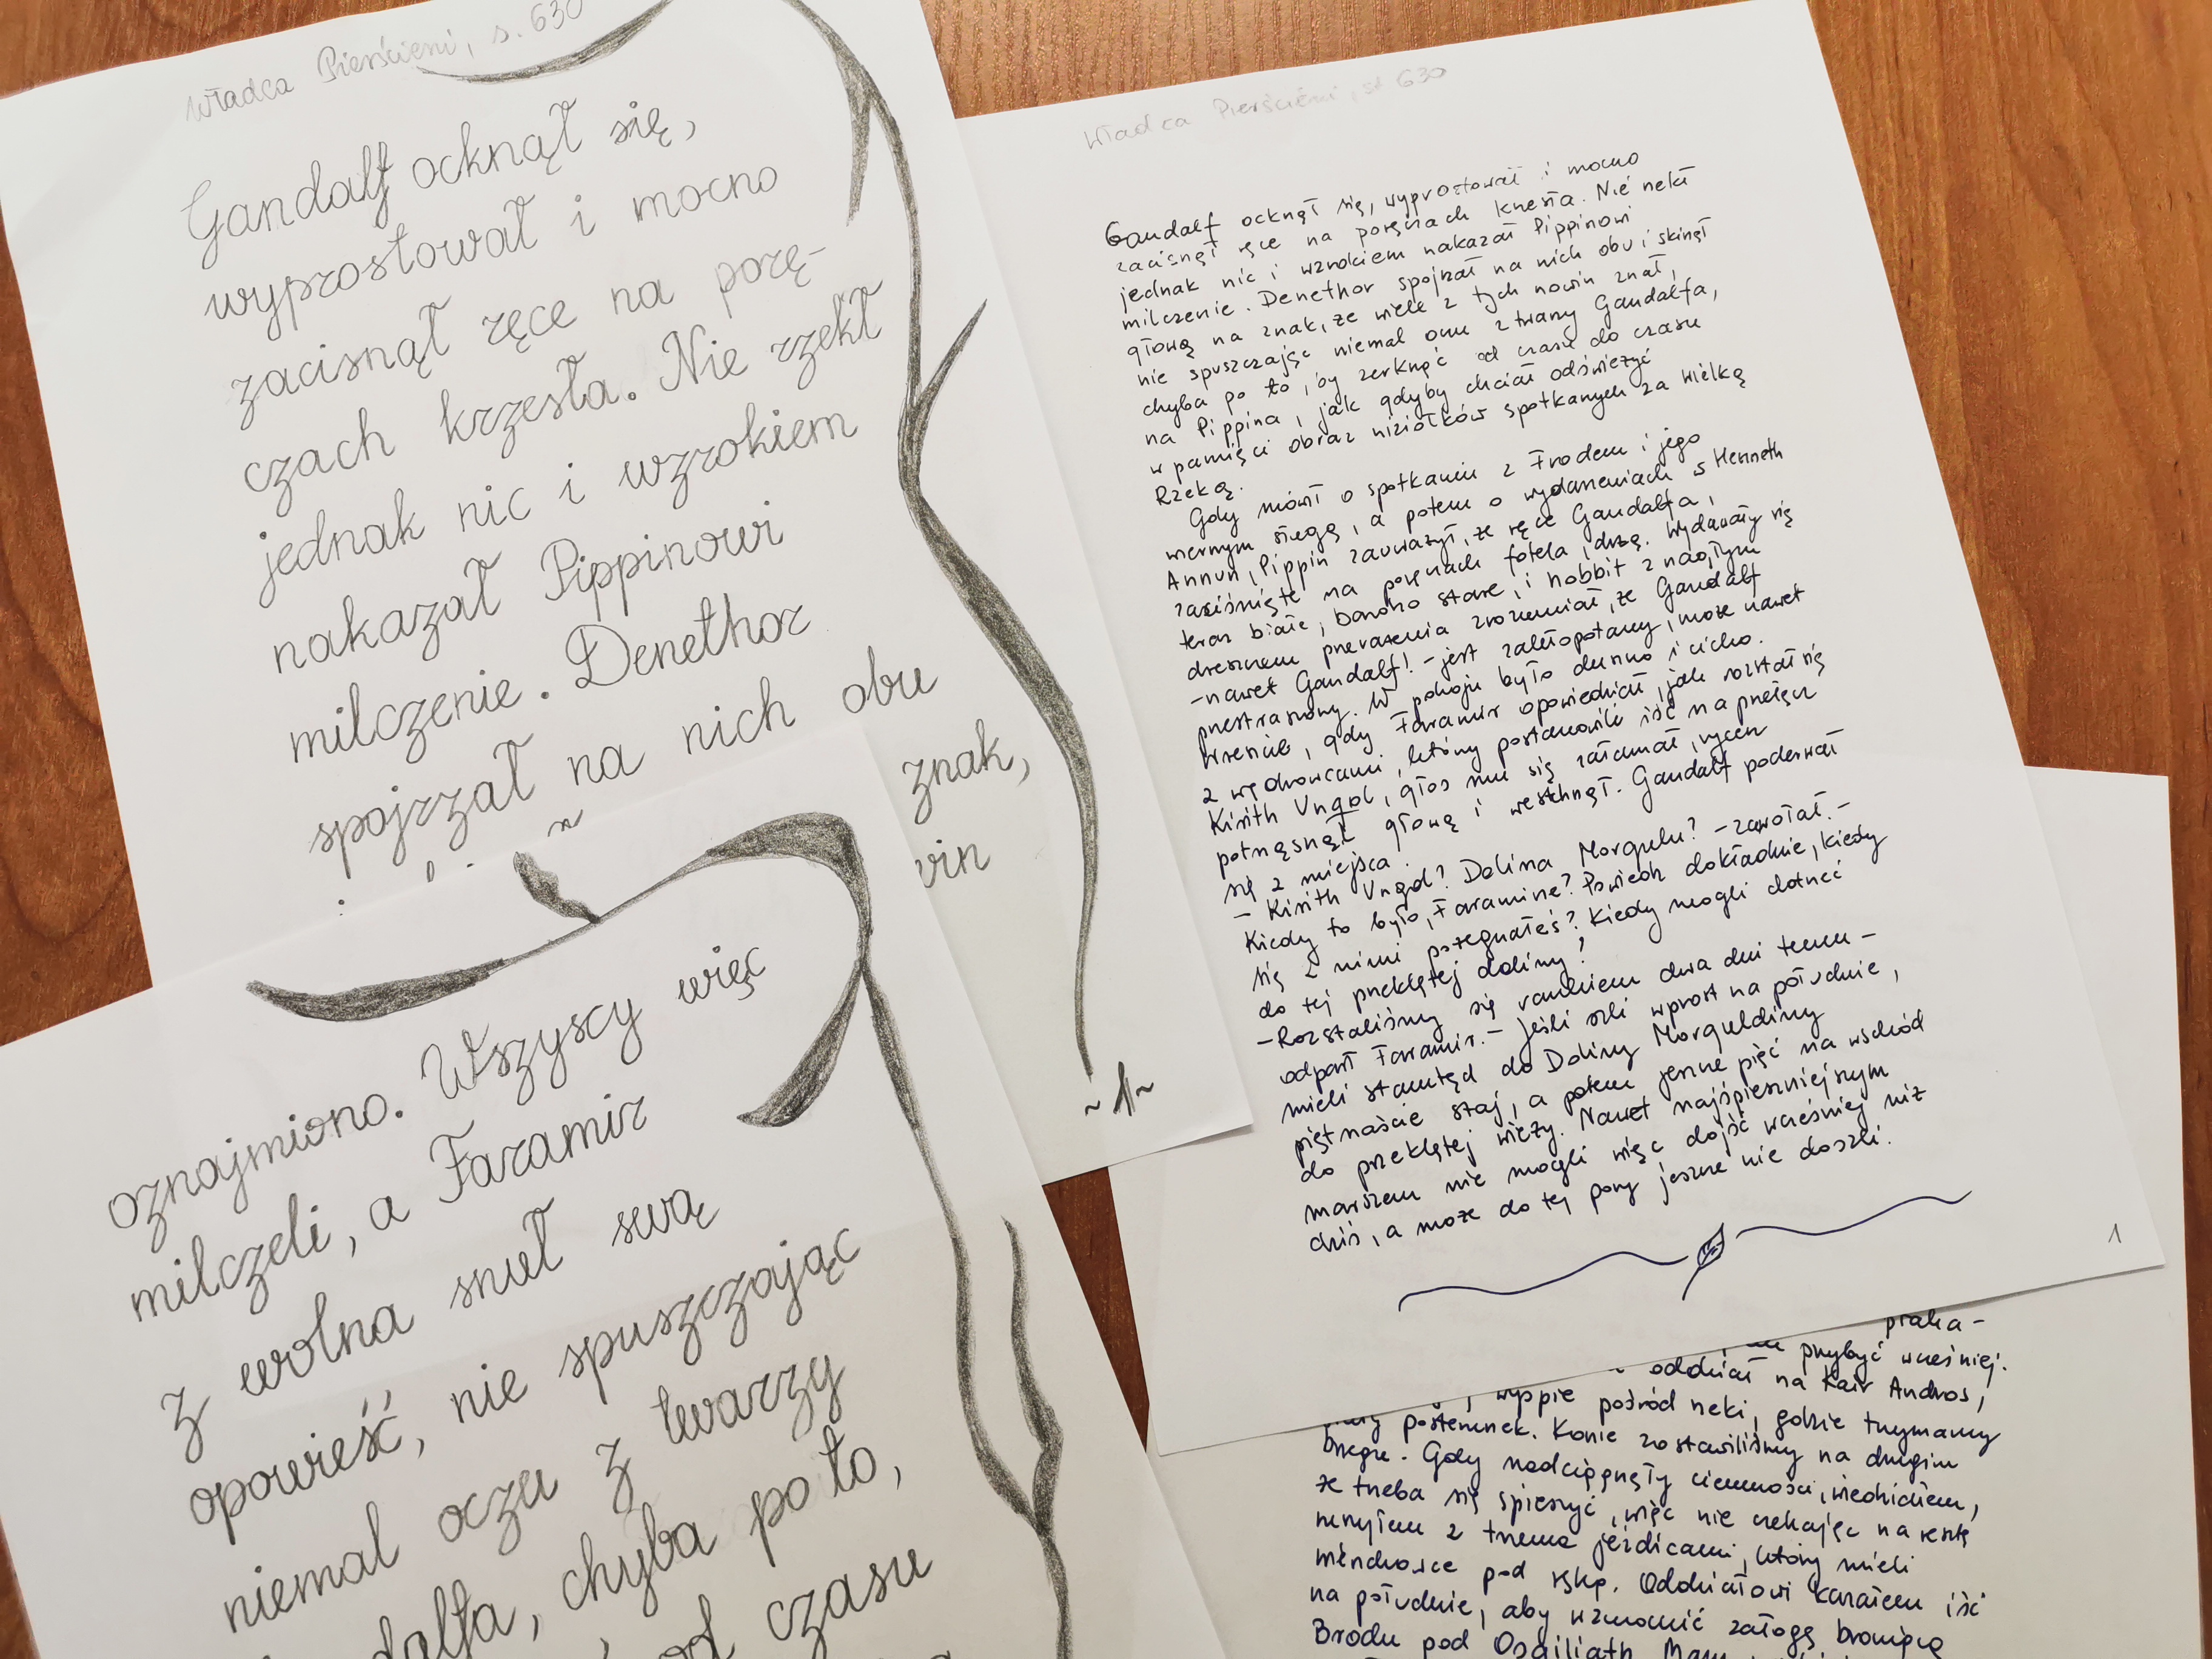 Władca Pierścieni, s. 630
Gandalf ocknął się,
wyprostował i mocno
zacisnął ręce na porę-
czach krzesła. Nie rzekł
jednak nic i wzrokiem
nakazał Pippinowi
milczenie. Denethor
spojrzał na nich obu
znak,
win
~1~
oznajmiono. Wszyscy więc
milczeli, a Faramir
z wolna snuł swą
opowieść, nie spuszczając
niemal oczu z twarzy
dalfa, chyba po to,
od czasu
Władca Pierścieni, st 630
Gandalf ocknął się, wyprostował i mocno
zacisnął ręce na poręczach krzesła. Nie rzekł
jednak nic i wzrokiem nakazał Pippinowi
milczenie. Denethor spojrzał na nich obu i skinął
głową na znak, że wiele z tych nowin znał,
nie spuszczając niemal oczu z twarzy Gandalfa,
chyba po to, by zerknąć od czasu do czasu
na Pippina, jak gdyby chciał odświeżyć
w pamięci obraz niziołków spotkanych za Wielką
Rzeką.
Gdy mówił o spotkaniu z Frodem i jego
wiernym sługą, a potem o wydarzeniach s Henneth
Annun, Pippin zauważył, że ręce Gandalfa,
zaciśnięte na poręczach fotela, drżą. Wydawały się
teraz białe, bardzo stare, i hobbit z nagłym
dreszczem przerażenia zrozumiał, że Gandalf
-nawet Gandalf! - jest zakłopotany, może nawet
przestraszony. W pokoju było duszno i cicho.
Wreszcie, gdy Faramir opowiedział, jak rozstał się
z wędrowcami, którzy postanowili iść na przełęcz
Kirith Ungol, głos mu się załamał, rycerz
potrząsnął głową i westchnął. Gandalf poderwał
się z miejsca.
- Kirith Ungol? Dolina Morgulu? - zawołał. -
Kiedy to było, Faramirze? Powiedz dokładnie, kiedy
się z nimi pożegnałeś? Kiedy mogli dotrzeć
do tej przeklętej doliny?
-Rozstaliśmy się rankiem dwa dni temu -
odparł Faramir. - Jeśli szli wprost na południe,
mieli stamtąd do Doliny Morguldiny
piętnaście staj, a potem jeszcze pięć na wschód
do przeklętej wieży. Nawet najśpieszniejszym
marszem nie mogli więc dojść wcześniej niż
dziś, a może do tej pory jeszcze nie doszli.
1
przybyć wcześniej.
oddział na Kair Andros,
wyspie pośród rzeki, gdzie trzymamy
posterunek. Konie zostawiliśmy na drugim
brzegu. Gdy nadciągnęły ciemności, wiedziałem,
że trzeba się spieszyć, więc nie czekając na resztę
ruszyłem z trzema jeźdźcami, którzy mieli
pod
na południe, aby wzmocnić załogę broniącą
Brodu pod Osgiliath. Mam